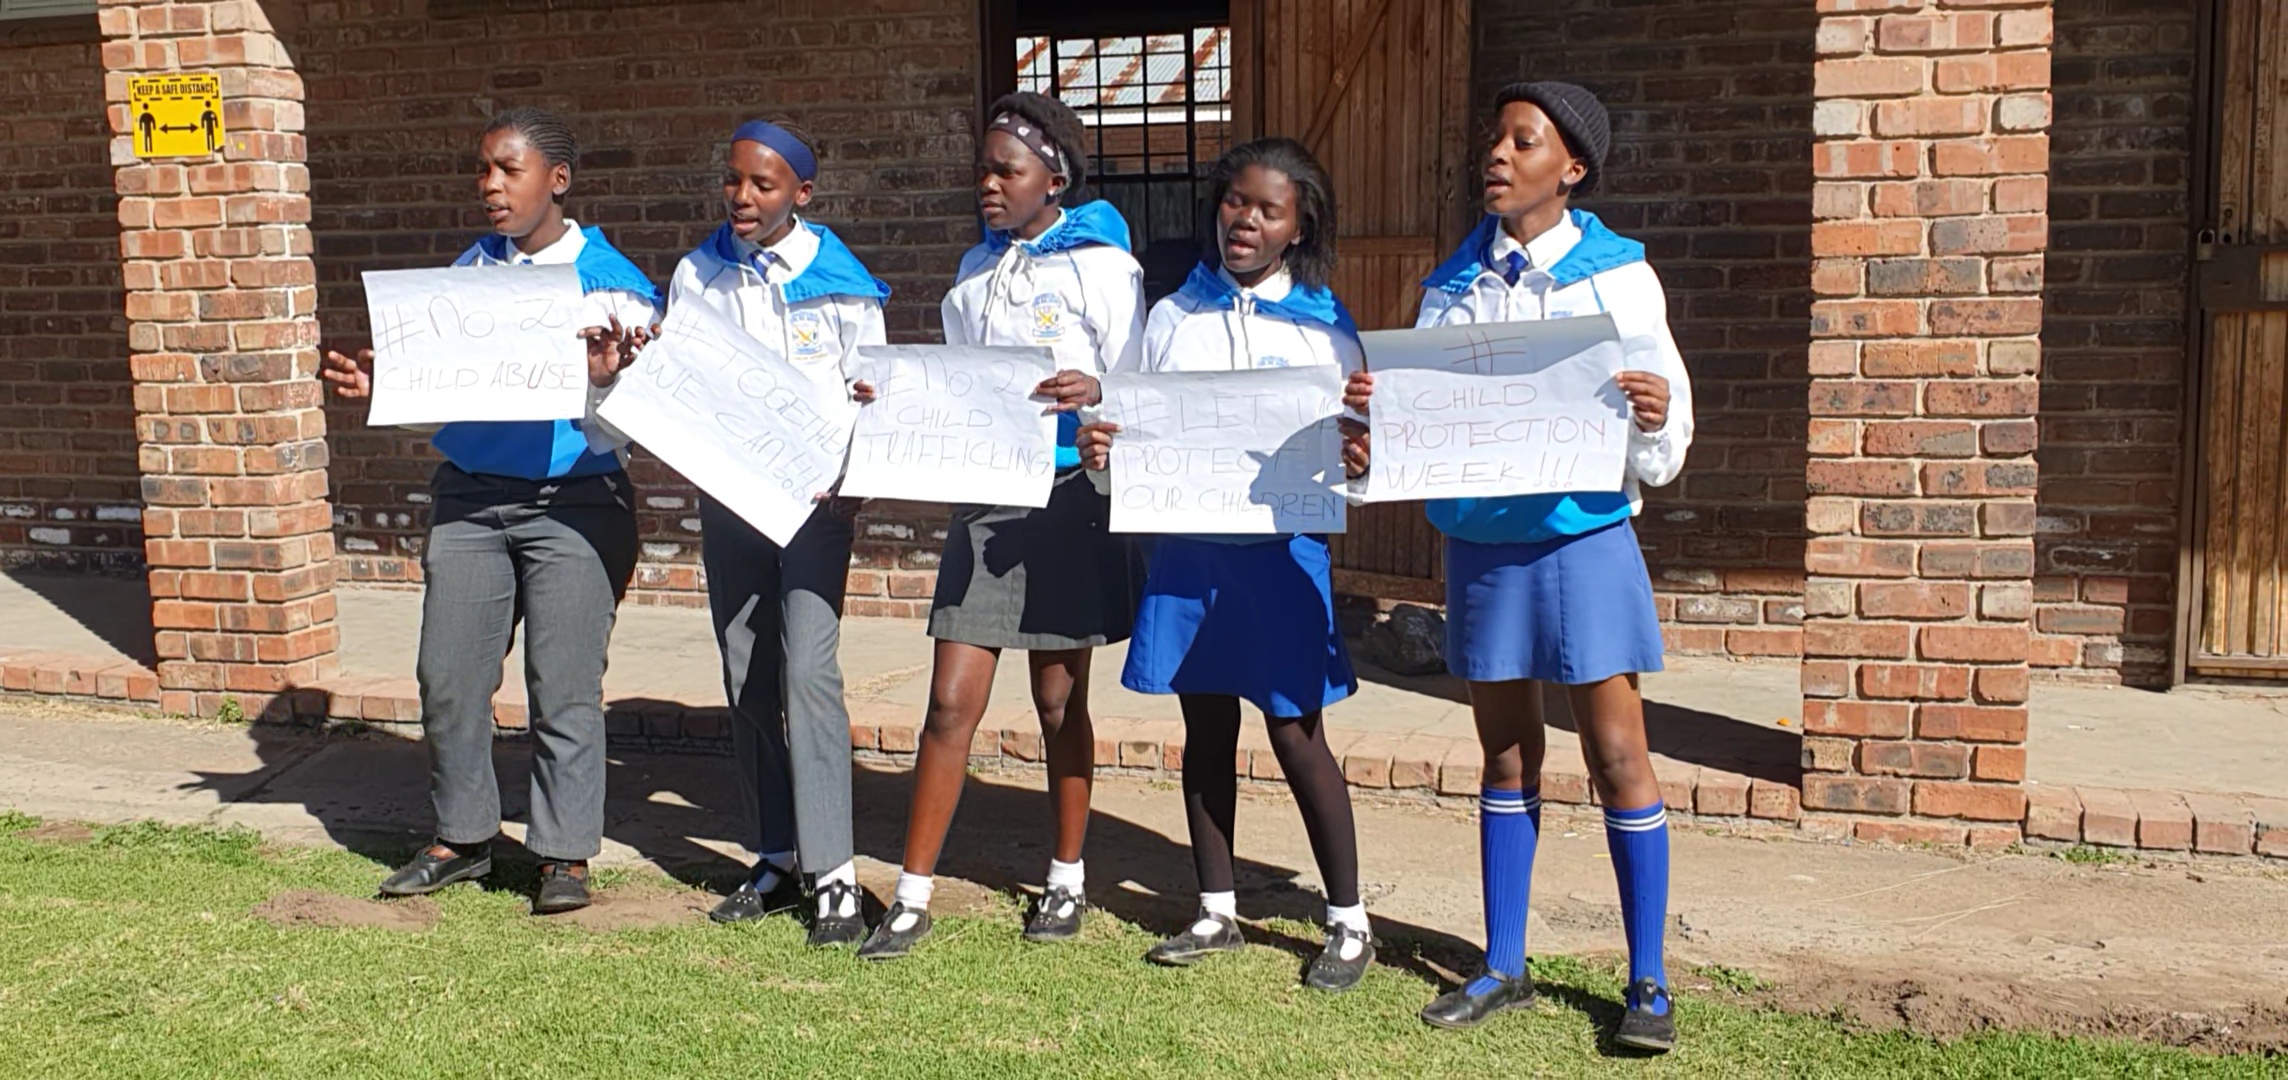 KEEP A SAFE DISTANCE
#No 2
CHILD ABUSE
# TOGETHER
WE CAN!!!
#No 2
CHILD
TRAFFICKING
# LET US
PROTECT
OUR CHILDREN
#
CHILD
PROTECTION
WEEK!!!